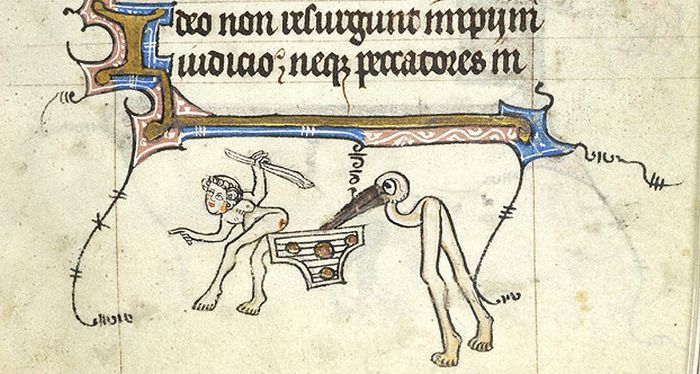 Ideo non resurgunt impij in
iudicio; neqꝫ peccatores in